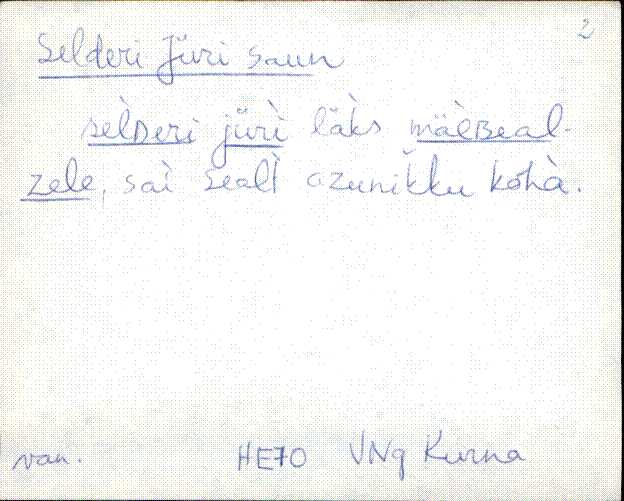 2
Selderi Jüri saun
sel̀Deri jürì läk̀s mäèBeal-
zele, saì sealt̀ azunik̆ku kohà.
van. HE70 VNg Kurna